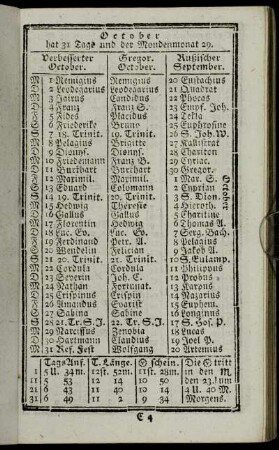 October
hat 31 Tage und der Mondenmonat 29.
Verbesserter October. Gregor. October. Rußischer September.
M 1 Remigius Remigius 20 Eustachius
D 2 Leodegarius Leodegarius 21 Quadrat
M 3 Jairus Candidus 22 Phocas
D 4 Franz Franz S. 23 Empf. Joh.
F 5 Fides Placidus 24 Tekla
S 6 Friederike Bruno 25 Euphrosine
S 7 18. Trinit. 19. Trinit. 26 S. Joh. W.
M 8 Pelagius Brigitte 27 Kallistrat
D 9 Dionys. Dionys. 28 Chariton
M 10 Friedemann Franz B. 29 Cyriac.
D 11 Burkhart Burkhart 30 Gregor.
F 12 Maximil. Maximil. 1 Mar. S.
S 13 Eduard Colomann 2 Cyprian
S 14 19. Trinit. 20. Trinit. 3 S. Dion.
M 15 Hedwig Theresie 4 Hieroth.
D 16 Gallus Gallus 5 Charitine
M 17 Florentin Hedwig 6 Thomas A.
D 18 Luc. Ev. Luc. Ev. 7 Serg. Bach.
F 19 Ferdinand Petr. A. 8 Pelagius
S 20 Wendelin Felician 9 Jakob A.
S 21 20. Trinit. 21. Trinit. 10 S. Eulamp.
M 22 Cordula Cordula 11 Philippus
D 23 Severin Joh. C. 12 Probus
M 24 Nathan Fortunat. 13 Karpus
D 25 Crispinus Crispin 14 Nazarius
F 26 Amandus Evarist 15 Euthem.
S 27 Sabina Sabine 16 Longinus
S 28 21. Tr. S. J. 22. Tr. S. J. 17 S. Hos. P.
M 29 Narcissus Zenobia 18 Lucas
D 30 Hartmann Claudius 19 Joel P.
M 31 Ref. Fest Wolfgang 20 Artemius
October
Tags Anf. T. Länge. ☉ schein. Die ☉ tritt
1 5 U. 34 m. 12 st. 52 m. 11 st. 28 m. in den ♏
11 5 53 12 14 10 50 den 23. um
21 6 43 11 40 10 14 4 U. 40 M.
31 6 49 11 2 9 34 Morgens.
C 4